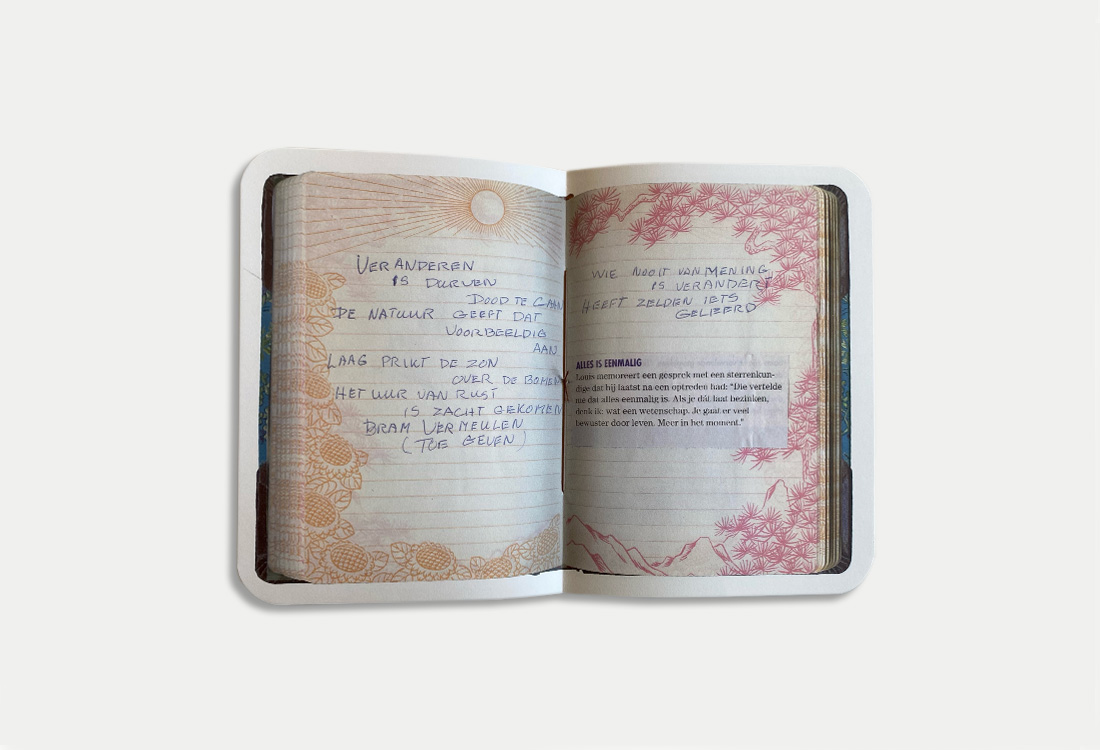 VERANDEREN
IS DURVEN
DOOD TE GAAN
DE NATUUR GEEFT DAT
VOORBEELDIG
AAN
LAAG PRIKT DE ZON
OVER DE BOMEN
HET UUR VAN RUST
IS ZACHT GEKOMEN
BRAM VERMEULEN
(TOE GEVEN)
WIE NOOIT VAN MENING
IS VERANDERT
HEEFT ZELDEN IETS
GELEERD
ALLES IS EENMALIG
Louis memoreert een gesprek met een sterrenkun-
dige dat hij laatst na een optreden had: "Die vertelde
me dat alles eenmalig is. Als je dát laat bezinken,
denk ik: wat een wetenschap. Je gaat er veel
bewuster door leven. Meer in het moment."